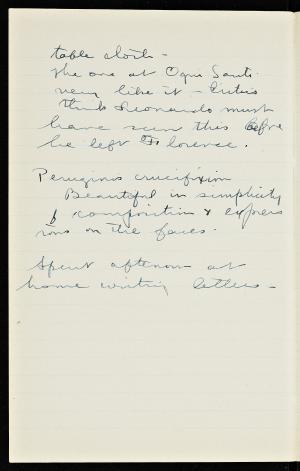 table cloth -
the one at Ogni Santi
very like it - Critics
think Leonardo must
have seen this before
he left Florence.
Peruginos crucifixion
Beautiful in simplicity
of composition & expres
sions on the faces.
Spent afternoon at
home writing letters -